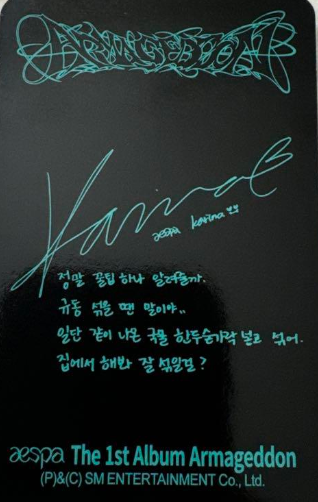 ARMAGEDDON
Karina
aespa karina
정말 꿀팁 하나 알려줄까.
규동 섞을 땐 말이야..
일단 같이 나온 국물 한두숟가락 넣고 섞어.
집에서 해봐 잘 섞일걸?
aespa The 1st Album Armageddon
(P)&(C) SM ENTERTAINMENT Co., Ltd.